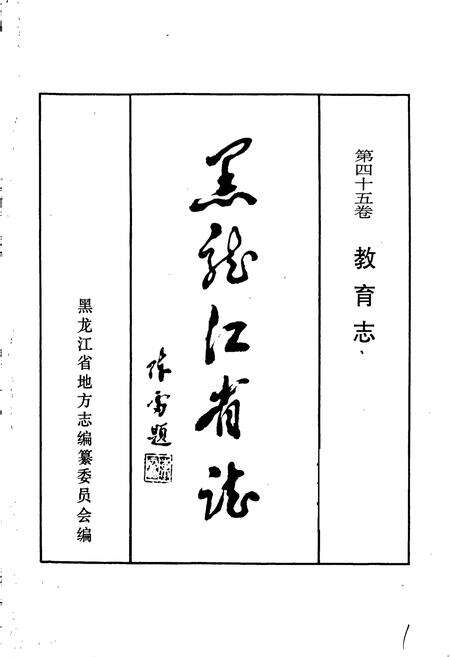 第四十五卷 教育志
黑龙江省志
陈雷题
黑龙江省地方志编纂委员会编
1